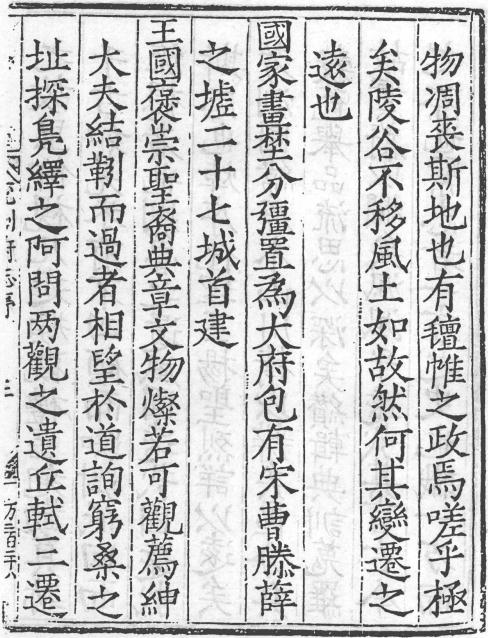 物凋喪斯地也有氊帷之政焉嗟乎極
矣陵谷不移風土如故然何其變遷之
遠也
國家畫埜分彊置為大府包有宋曹滕薛
之墟二十七城首建
王國褒崇聖裔典章文物燦若可觀薦紳
大夫結靷而過者相望於道詢窮桑之
址探鳬繹之阿問两觀之遺丘軾三遷